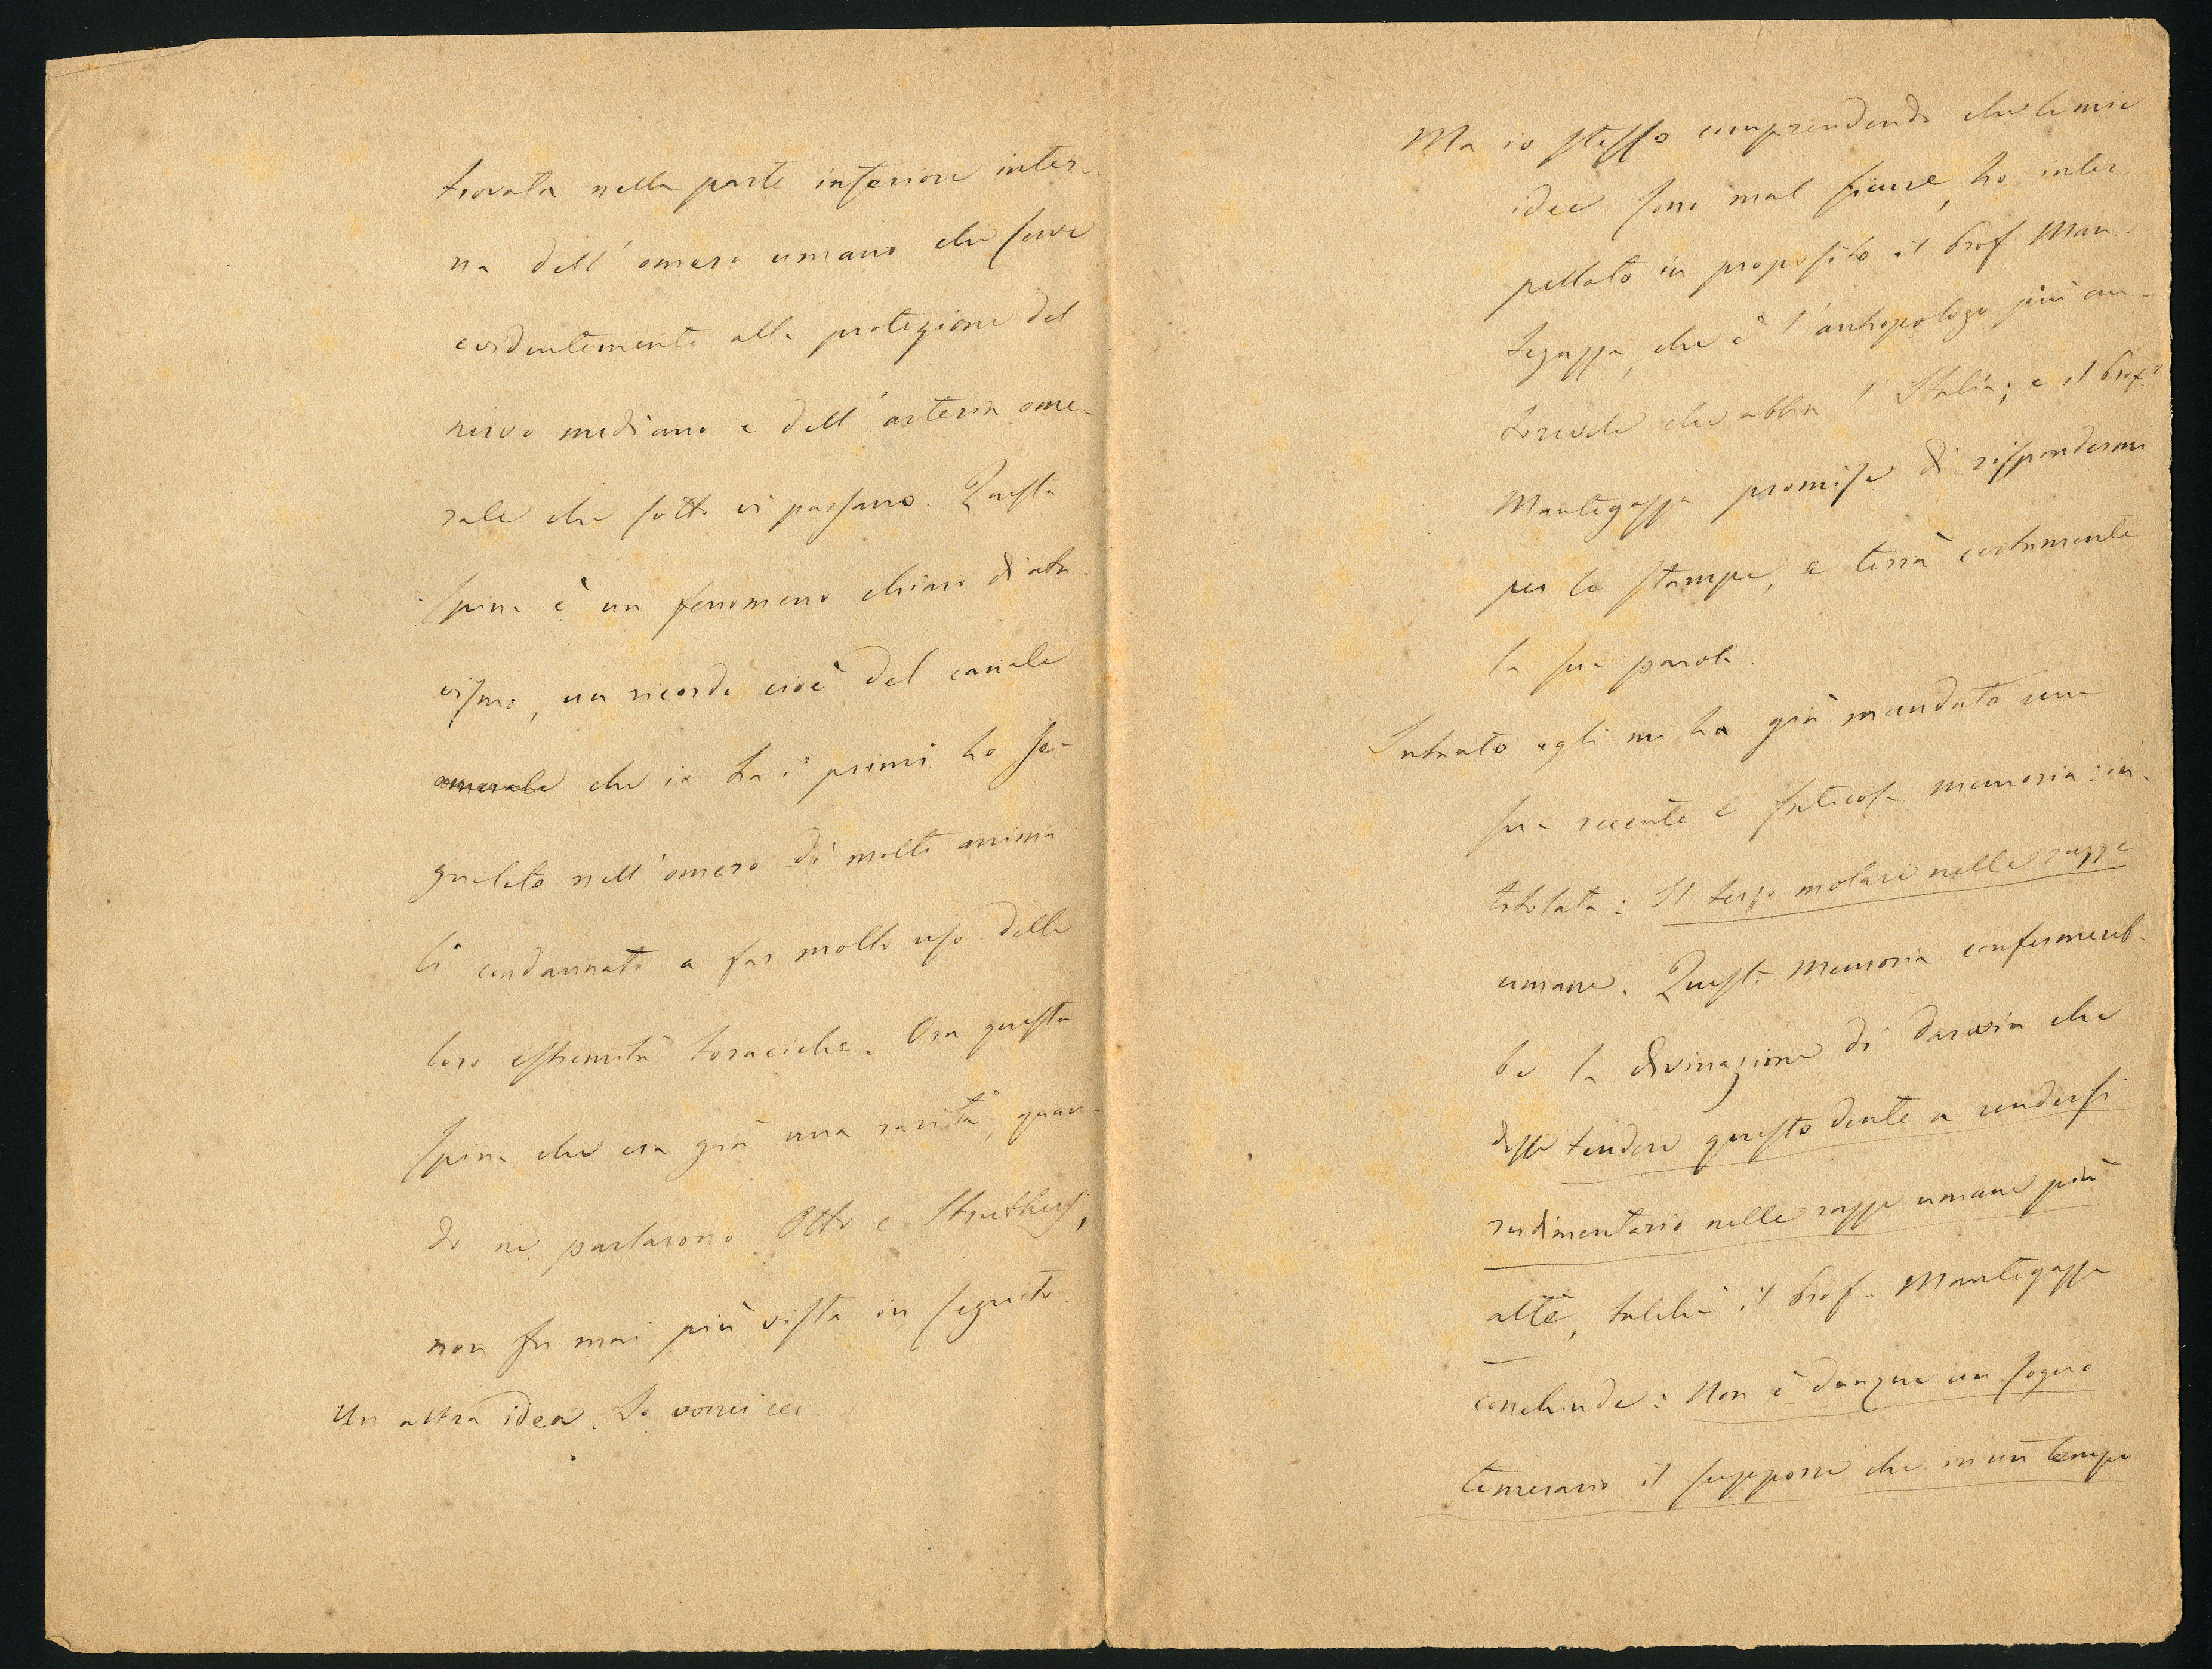 trovata nella parte inferiore inter-
na dell'omero umano che serve
evidentemente alla protezione del
nervo mediano e dell'arteria ome-
rale che sotto vi passano. Questa
spina è un fenomeno chiaro di ata-
vismo, un ricordo cioè del canale
omerale che io tra i primi ho se-
gnalato nell'omero di molti anima
li condannati a far molto uso delle
loro estremità toraciche. Ora questa
spina che era già una rarità, quan-
do ne parlarono Otto e Struthers,
non fu mai più vista in seguito.
Un altra idea. Io vorrei ecc.
Ma io stesso comprendendo che le mie
idee sono mal sicure, ho inter-
pellato in proposito il Prof Man-
tegazza, che è l'antropologo più au-
torevole che abbia l'Italia; e il Prof.
Mantegazza promise di rispondermi
per le stampe, e terrà certamente
la sua parola.
Intanto egli mi ha già mandato una
sua recente e faticosa memoria: in-
titolata: Il terzo molare nelle razze
umane. Questa Memoria confermereb-
be la divinazione di Darwin che
disse tendere questo dente a rendersi
rudimentario nelle razze umane più
alte, talché il Prof. Mantegazza
conchiude: Non è dunque un sogno
temerario il supporre che in un tempo